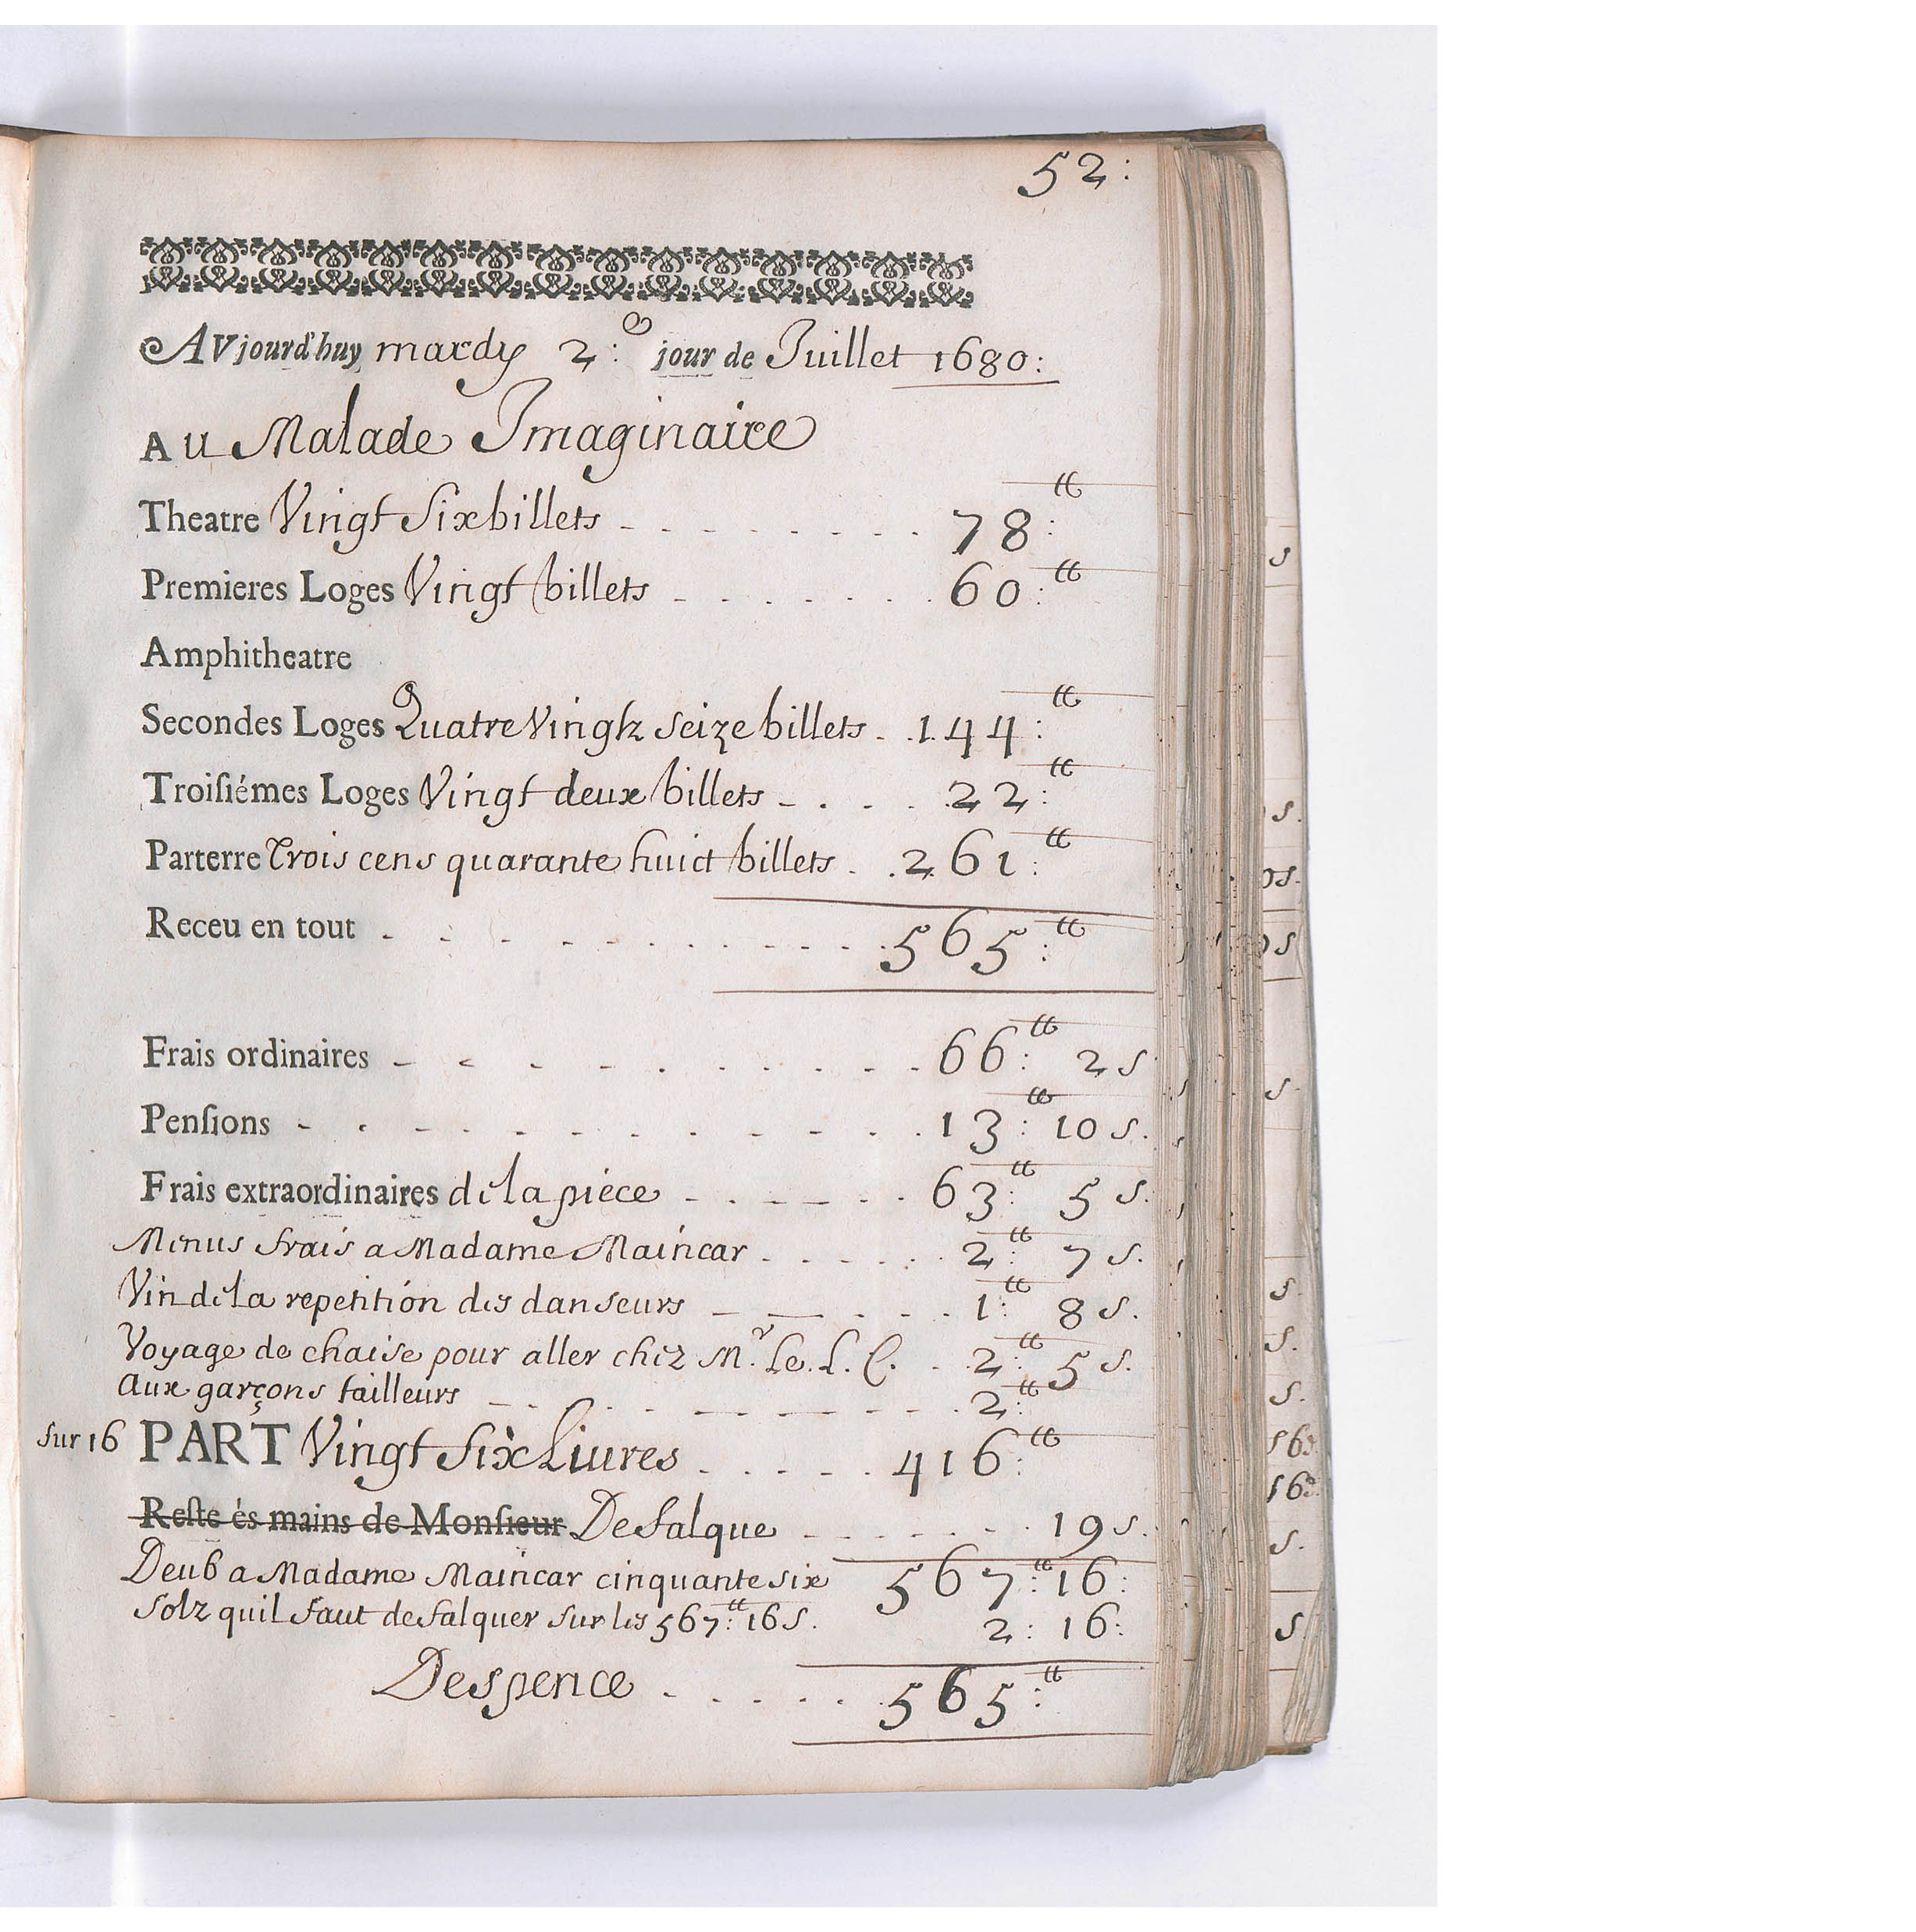 52:
AVjourd'huy mardy 2:e jour de Juillet 1680:
Au Malade Imaginaire
Theatre Vingt Six billets - - - - - - - - 78:tt
Premieres Loges Vingt billets - - - - - - - 60:tt
Amphitheatre
Secondes Loges Quatre Vingtz seize billets - - 144:tt
Troisiémes Loges Vingt deux billets - - - - 22:tt
Parterre Trois cens quarante huict billets - - 261:tt
Receu en tout - - - - - - - - - - 565:tt
Frais ordinaires - - - - - - - - - 66:tt 2 s
Pensions - - - - - - - - - - - 13:tt 10 s.
Frais extraordinaires de la piece - - - - - - 63:tt 5 s.
Menus frais a Madame Maincar - - - - - 2:tt 7 s.
Vin de la repetition des danseurs - - - - - 1:tt 8 s.
Voyage de chaise pour aller chez M.r Le. L. C. - 2:tt 5 s.
Aux garçons tailleurs - - - - - - - - 2:tt
Sur 16 PART Vingt Six Liures - - - - - 416:tt
Reste és mains de Monsieur Defalque - - - - - - 19 s.
Deub a Madame Maincar cinquante six 567:tt 16:
Solz quil faut defalquer sur les 567:tt 16 s. 2: 16:
Despence - - - - - 565:tt